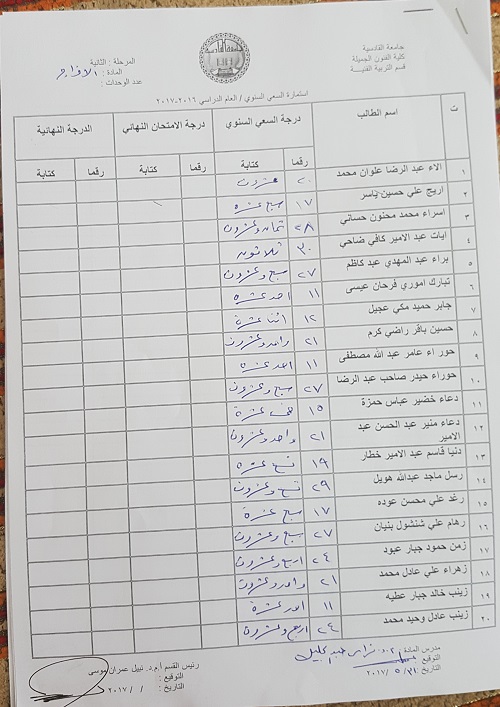 جامعة القادسية
كلية الفنون الجميلة
قسم التربية الفنية
المرحلة : الثانية
المادة : الاخراج
عدد الوحدات :
استمارة السعي السنوي / العام الدراسي ٢٠١٦-٢٠١٧
ت اسم الطالب درجة السعي السنوي درجة الامتحان النهائي الدرجة النهائية
رقما كتابة رقما كتابة رقما كتابة
١ الاء عبد الرضا علوان محمد ٢٠ عشرون
٢ اريج علي حسين ياسر ١٧ سبع عشرة
٣ اسراء محمد محنون حساني ٢٨ ثمان وعشرون
٤ ايات عبد الامير كافي ضاحي ٣٠ ثلاثون
٥ براء عبد المهدي عبد كاظم ٢٧ سبع وعشرون
٦ تبارك اموري فرحان عيسى ١١ احد عشرة
٧ جابر حميد مكي عجيل ١٢ اثنا عشرة
٨ حسين باقر راضي كرم ٢١ واحد وعشرون
٩ حوراء عامر عبد الله مصطفى ١١ احد عشرة
١٠ حوراء حيدر صاحب عبد الرضا ٢٧ سبع وعشرون
١١ دعاء خضير عباس حمزة ١٥ خمس عشرة
١٢ دعاء منير عبد الحسن عبد الامير ٢١ واحد وعشرون
١٣ دنيا قاسم عبد الامير خطار ١٩ تسع عشرة
١٤ رسل ماجد عبدالله هويل ٢٩ تسع وعشرون
١٥ رغد علي محسن عوده ١٧ سبع عشرة
١٦ رهام علي شنشول بنيان ٢٧ سبع وعشرون
١٧ زمن حمود جبار عبود ٢٤ اربع وعشرون
١٨ زهراء علي عادل محمد ٢١ واحد وعشرون
١٩ زينب خالد جبار عطيه ١١ احد عشرة
٢٠ زينب عادل وحيد محمد ٢٤ اربع وعشرون
مدرس المادة :
التوقيع :
التاريخ : ٢٠١٧/٥/٢١
رئيس القسم أ.م.د. نبيل عمران موسى
التوقيع :
التاريخ : / / ٢٠١٧